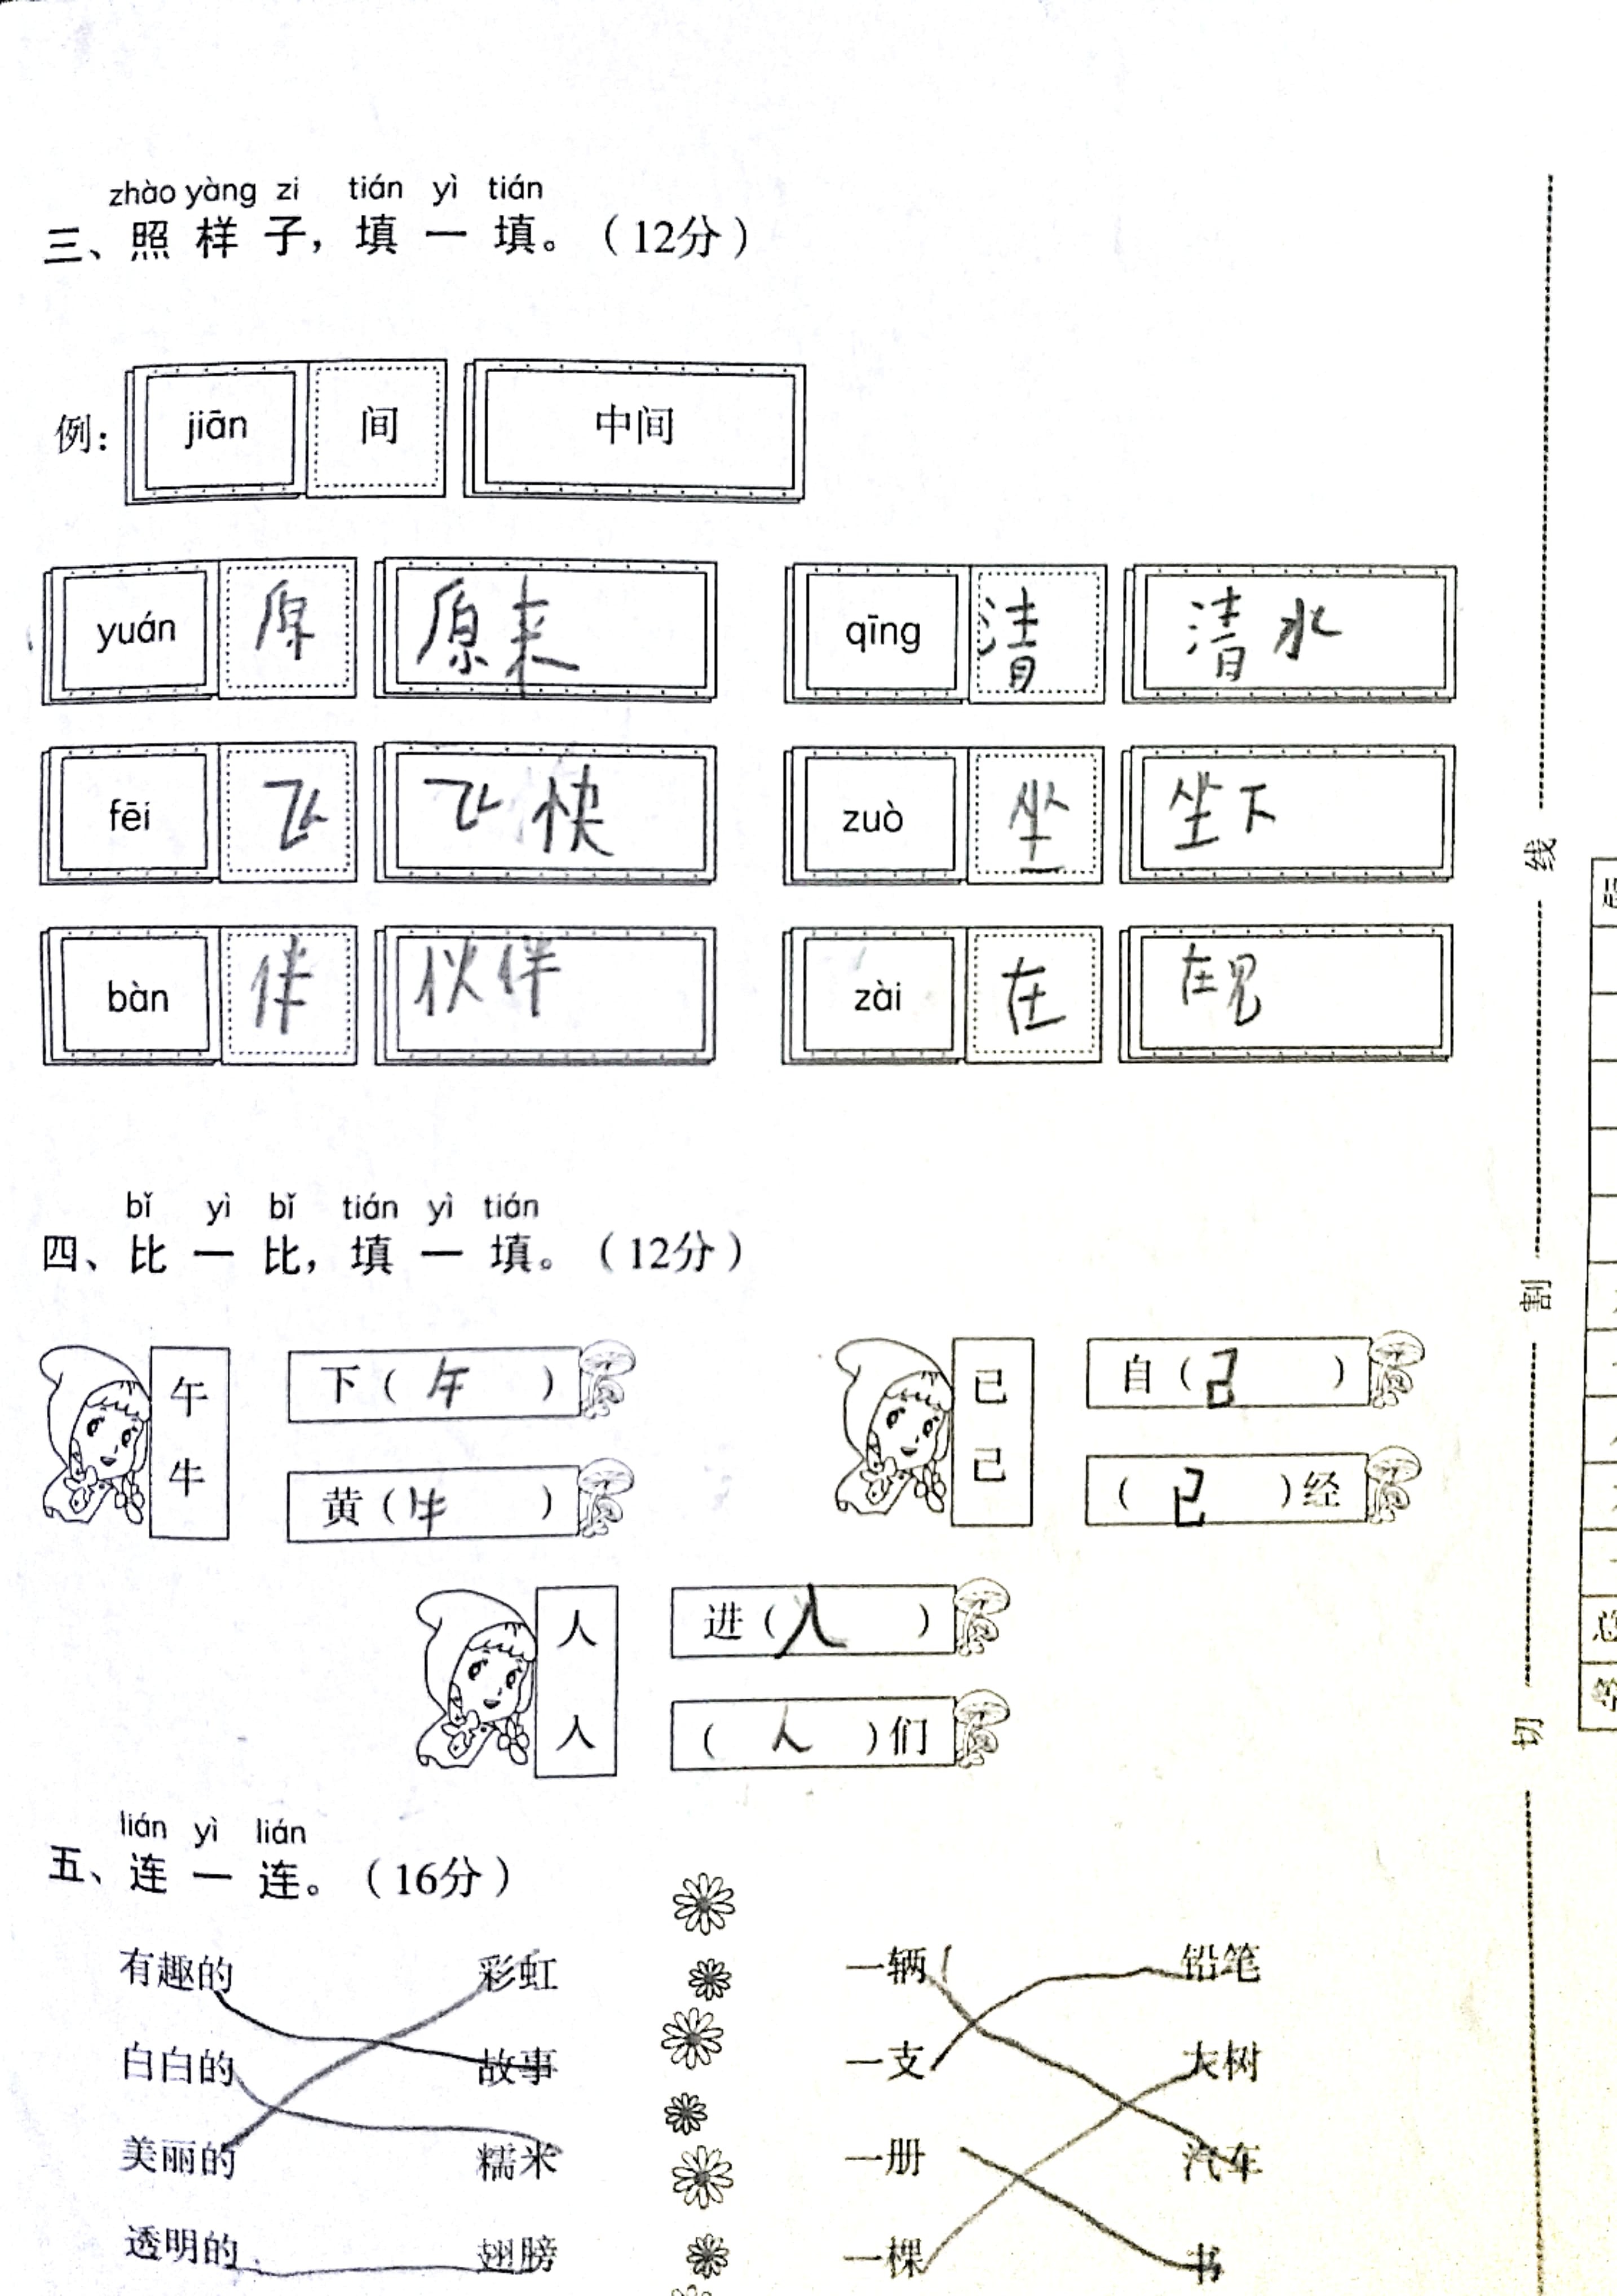 zhào yàng zi tián yì tián
三、照样子，填一填。（12分）
例： jiān 间 中间
yuán 原 原来 qīng 清 清水
fēi 飞 飞快 zuò 坐 坐下
bàn 伴 伙伴 zài 在 在
bǐ yì bǐ tián yì tián
四、比一比，填一填。（12分）
午 下（午） 已 自（己）
牛 黄（牛） 己 （已）经
人 进（入）
人 （人）们
lián yì lián
五、连一连。（16分）
有趣的 彩虹 一辆 铅笔
白白的 故事 一支 大树
美丽的 糯米 一册 汽车
透明的 翅膀 一棵 书
线
割
切
总